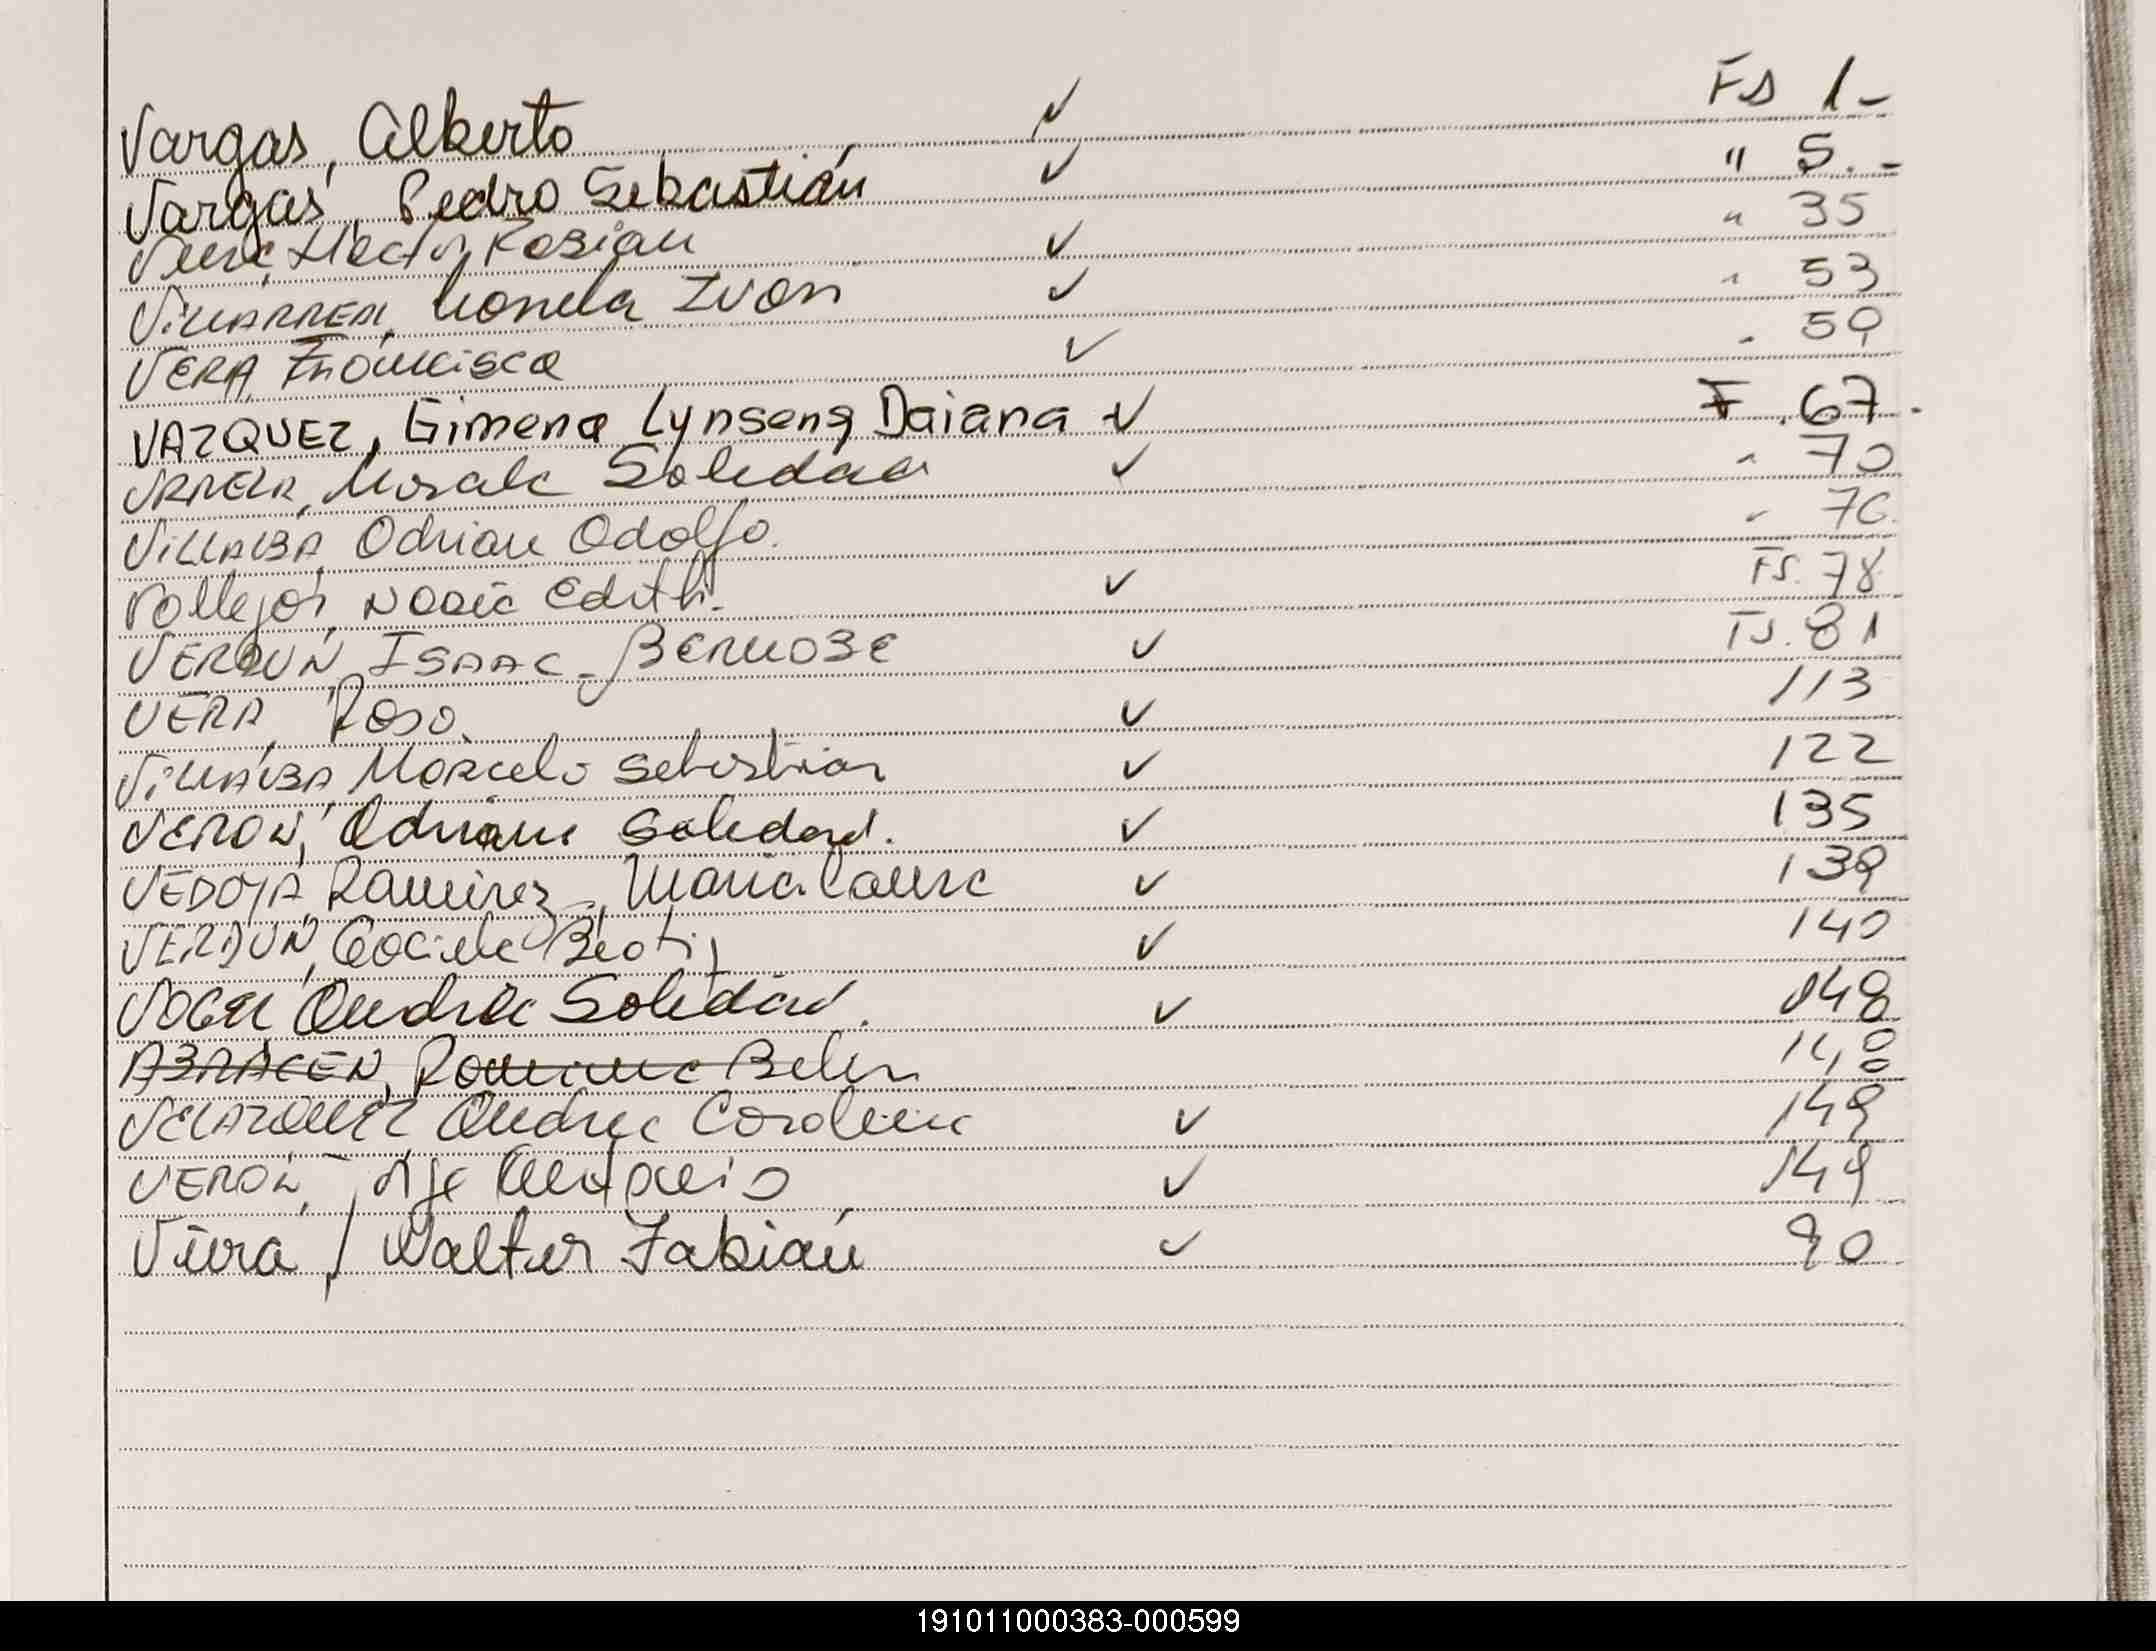 Vargas, Alberto ✓ Fs 1-
Vargas, Pedro Sebastián ✓ " 5.-
Vera, Hector Fabian ✓ " 35
VILLARREAL, Ivon ✓ " 53
VERA, Francisca ✓ " 59
VAZQUEZ, Gimena Lynseng Daiana ✓ F. 67.
VARELA, Soledad ✓ " 70
VILLALBA, Adrian Adolfo. " 76.
Vallejos, Nadia Edith. ✓ Fs. 78
VERDUN, ISAAC ✓ Fs. 81
VERA, Rosa. ✓ 113
VILLALBA, Marcelo Sebastian ✓ 122
VERON, Adriana Soledad. ✓ 135
VEDOYA Ramirez, Maria Laura ✓ 139
VERDUN, Graciela Beatriz ✓ 140
VOGEL Andrea Soledad. ✓ 148
Belen 148
VELAZQUEZ Andrea Carolina ✓ 149
VERON, ✓ 149
Viera, Walter Fabián ✓ 90
191011000383-000599